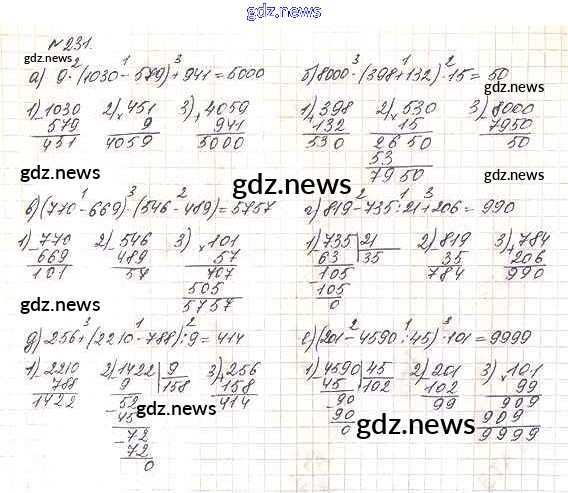 gdz.ru
№231.
gdz.ru
а) 9·(1030-579)+941=5000
б) 8000-(398+132)·15=50
gdz.ru
gdz.ru
1) 1030 2) 451 3) 4059
- 579 × 9 + 941
451 4059 5000
1) 398 2) 530 3) 8000
+ 132 × 15 - 7950
530 2650 50
53
7950
gdz.ru
в) (770-669)·(546-489)=5757
г) 819-735:21+206=990
1) 770 2) 546 3) 101
- 669 - 489 × 57
101 57 707
505
5757
1) 735 21 2) 819 3) 784
- 63 35 - 35 + 206
105 784 990
- 105
0
gdz.ru
gdz.ru
gdz.ru
д) 256+(2210-788):9=414
е) (201-4590:45)·101=9999
1) 2210 2) 1422 9 3) 256
- 788 - 9 158 + 158
1422 52 414
- 45
72
- 72
0
1) 4590 45 2) 201 3) 101
- 45 102 - 102 × 99
90 99 909
- 90 909
0 9999
gdz.ru
gdz.ru
gdz.ru